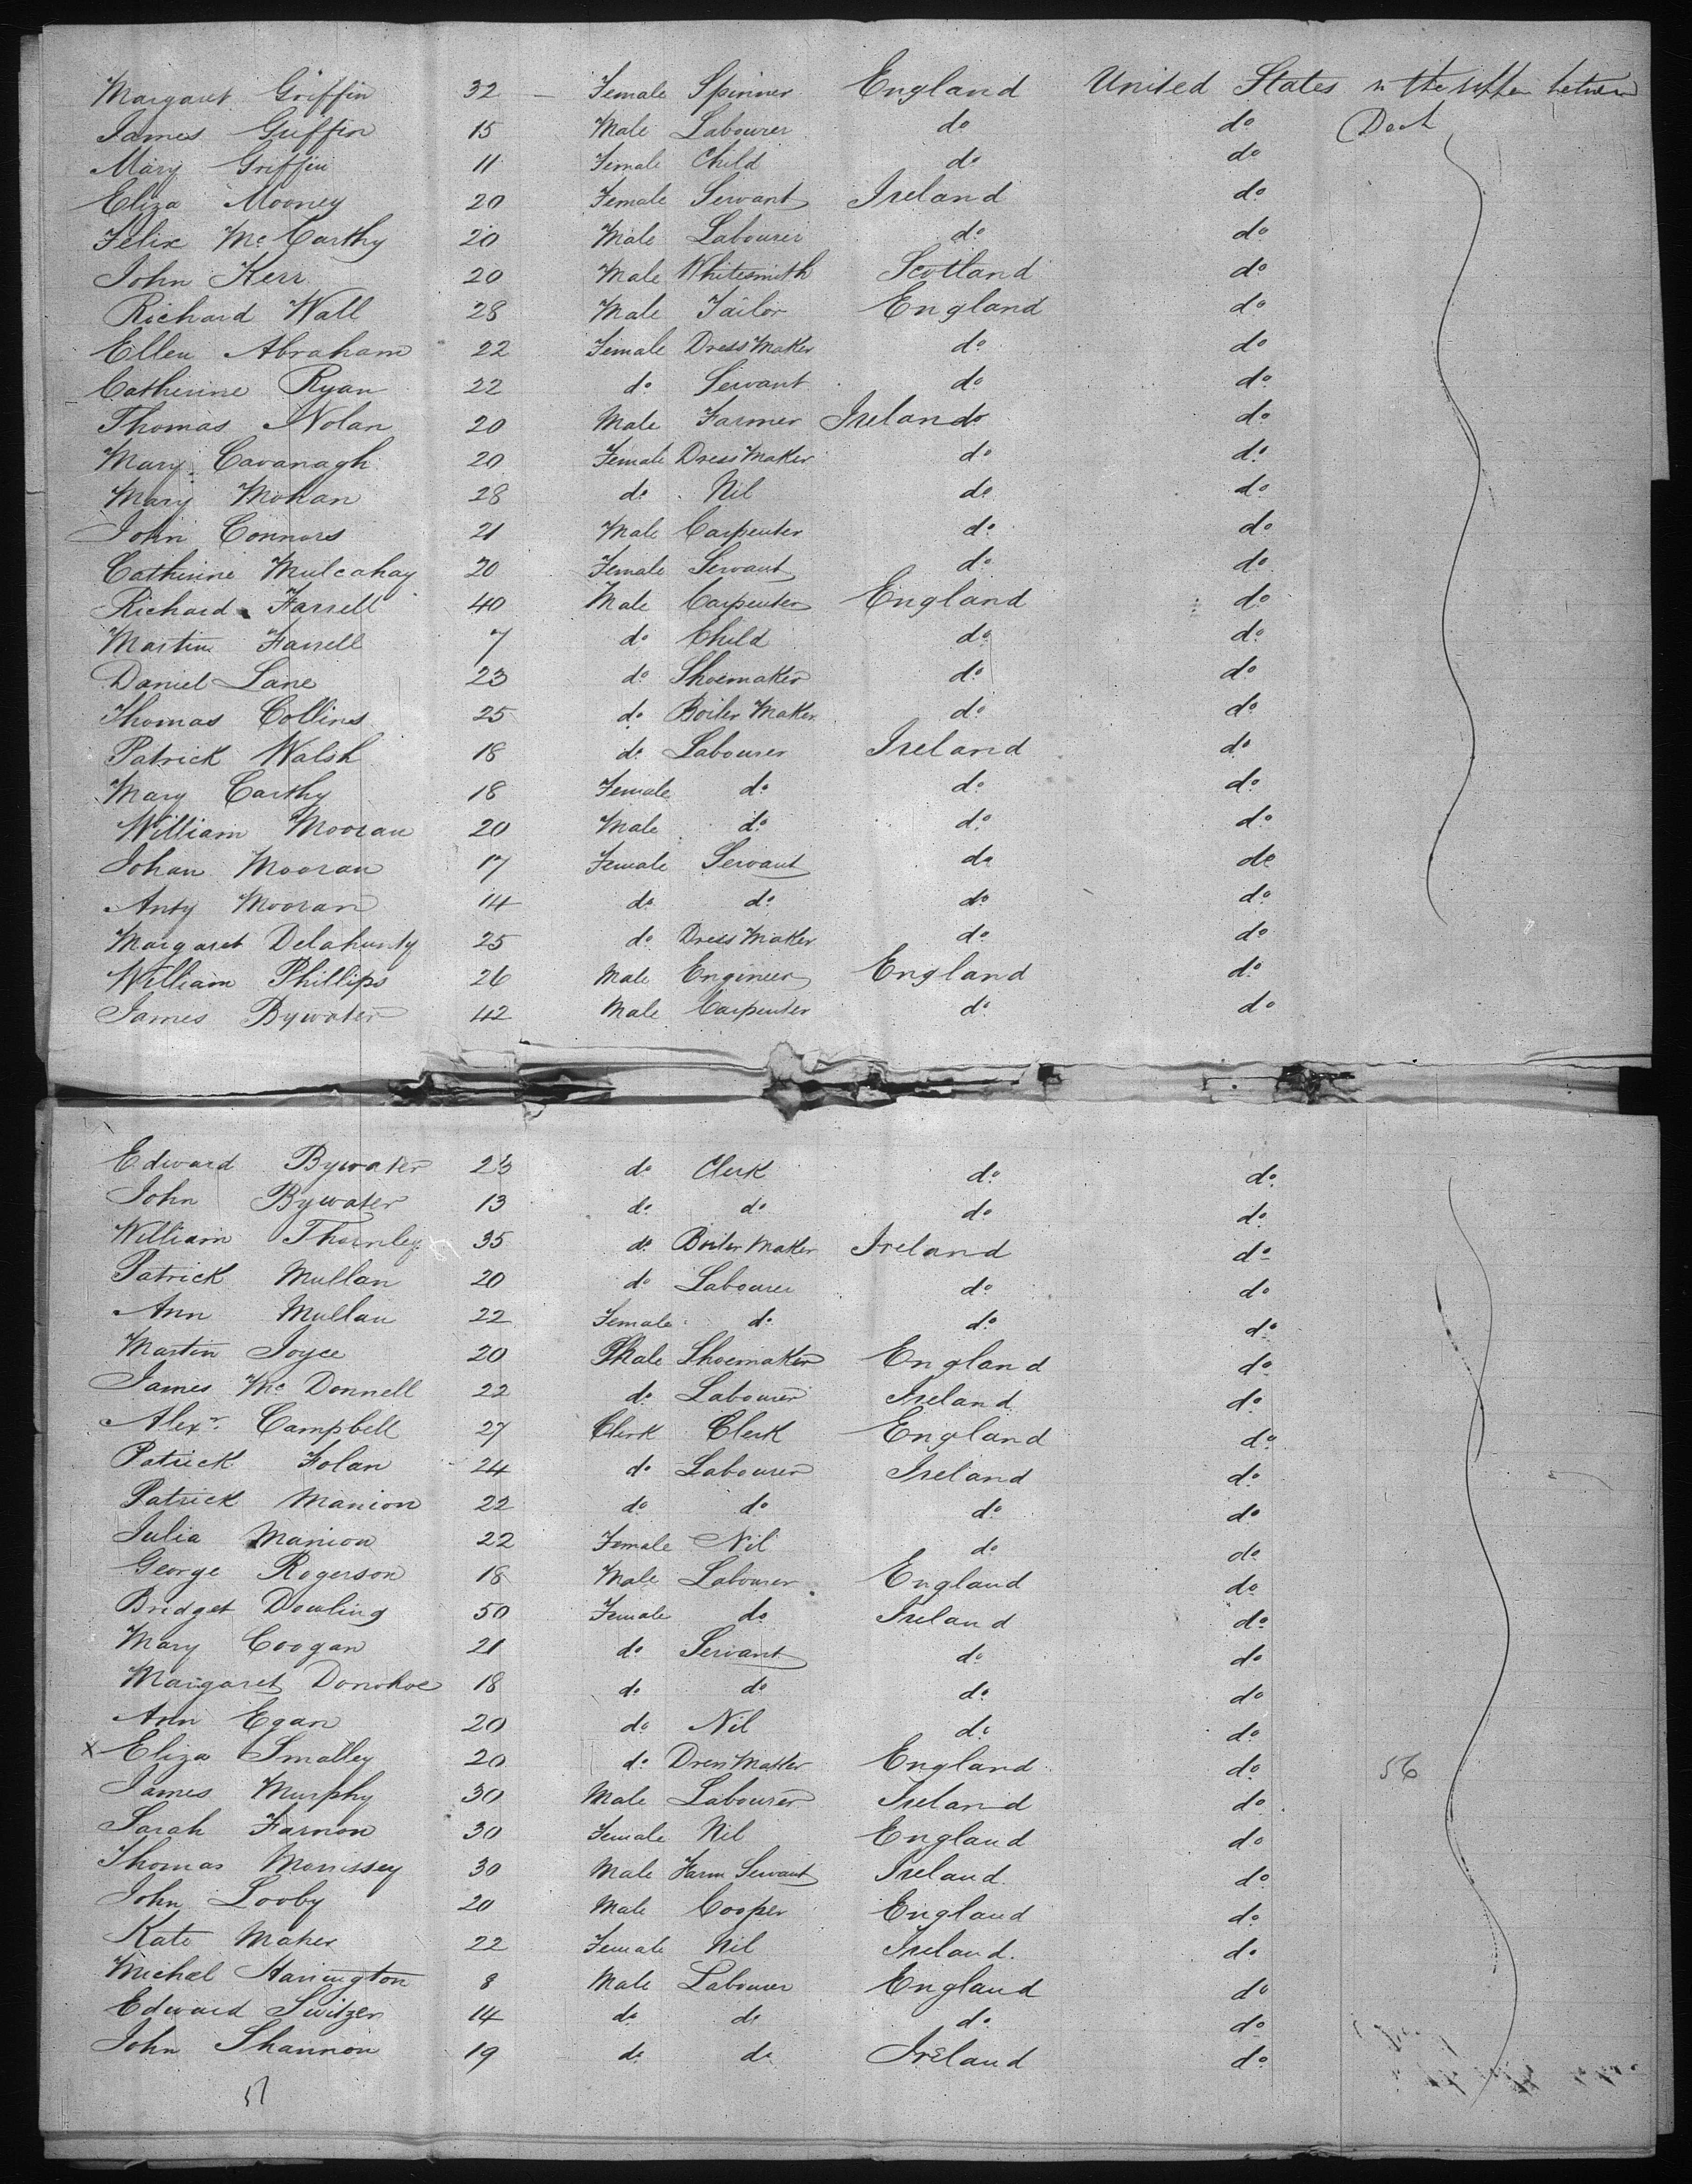 Margaret Griffin 32 — Female Spinner England United States in the between
James Griffin 15 Male Labourer do do Deck
Mary Griffin 11 Female Child do do
Eliza Mooney 20 Female Servant Ireland do
Felix McCarthy 20 Male Labourer do do
John Kerr 20 Male Whitesmith Scotland do
Richard Wall 28 Male Tailor England do
Ellen Abraham 22 Female Dress Maker do do
Catherine Ryan 22 do Servant do do
Thomas Nolan 20 Male Farmer Ireland do
Mary Cavanagh 20 Female Dress Maker do do
Mary Mohan 28 do Nil do do
John Connors 21 Male Carpenter do do
Catherine Mulcahay 20 Female Servant do do
Richard Farrell 40 Male Carpenter England do
Martin Farrell 7 do Child do do
Daniel Lane 23 do Shoemaker do do
Thomas Collins 25 do Boiler Maker do do
Patrick Walsh 18 do Labourer Ireland do
Mary Carthy 18 Female do do do
William Mooran 20 Male do do do
Johan Mooran 17 Female Servant do do
Anty Mooran 14 do do do do
Margaret Delahunty 25 do Dress Maker do do
William Phillips 26 Male Engineer England do
James Bywater 42 Male Carpenter do do
Edward Bywater 23 do Clerk do do
John Bywater 13 do do do do
William Thornley 35 do Boiler Maker Ireland do
Patrick Mullan 20 do Labourer do do
Ann Mullan 22 Female do do do
Martin Joyce 20 Male Shoemaker England do
James McDonnell 22 do Labourer Ireland do
Alexr Campbell 27 Clerk Clerk England do
Patrick Folan 24 do Labourer Ireland do
Patrick Manion 22 do do do do
Julia Manion 22 Female Nil do do
George Rogerson 18 Male Labourer England do
Bridget Dowling 50 Female do Ireland do
Mary Coogan 21 do Servant do do
Margaret Donohoe 18 do do do do
Ann Egan 20 do Nil do do
x Eliza Smalley 20 do Dress Maker England do 56
James Murphy 30 Male Labourer Ireland do
Sarah Farnon 30 Female Nil England do
Thomas Morrissey 30 Male Farm Servant Ireland do
John Looby 20 Male Cooper England do
Kate Maher 22 Female Nil Ireland do
Michael Harrington 8 Male Labourer England do
Edward Switzer 14 do do do do
John Shannon 19 do do Ireland do
51